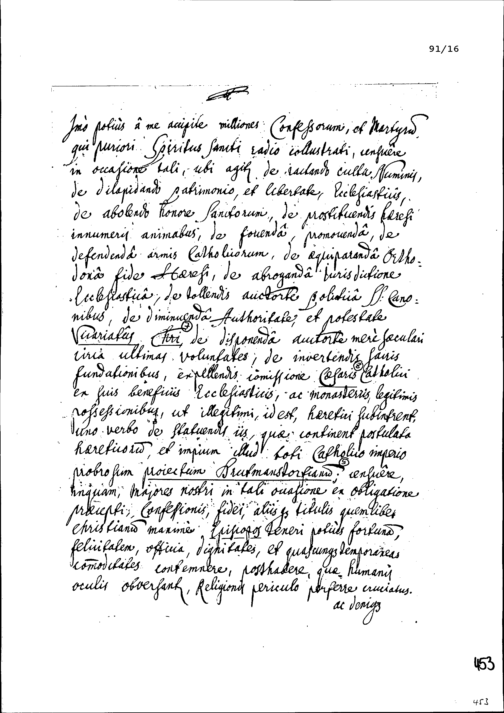 91/16
Imò potiùs à me accipite milliones Confessorum, et Martyrũ
qui puriori Spiritus Sancti radio collustrati, censuêre
in occasione tali, ubi agit de cultu Numinis,
de dilapidando patrimonio, et libertate Ecclesiasticis,
de abolendo honore Sanctorum, de prostituendis hæresi
innumeris animabus, de fovenda, promovendâ, de
defendendâ armis Catholicorum, de æquiparandâ Ortho=
doxæ fidei Hæresi, de abrogandâ iurisdictione
Ecclesiasticâ, de tollendis Cano=
nibus, de diminuendâ Authoritate, et potestate
Vicariatûs Chri, de disponendâ autorte merè sæculari
circa ultimas voluntates, de invertendis
fundationibus, expellendis comissione Cæsaris Catholici
ex suis beneficiis Ecclesiasticis, ac monasteriis, legitimis
possessionibus, ut illegitimi, id est, hæretici subintrent,
uno verbo de statuendis iis, quæ continent postulata
hæreticorũ, et impium illud toti Catholico imperio
probrosum proiectum censuêre,
inquam, Majores nostri in tali occasione ex obligatione
præcepti, Confessionis, fidei, aliisq titulis quemlibet
christianũ maximè Episcopos teneri potiùs fortunã,
felicitatem, officia, dignitates, et quæcunq temporaneas
comoditates contemnere, posthabere, quæ humanis
oculis obversant, Religionis periculo perferre cruciatus.
ac deniq
453
453